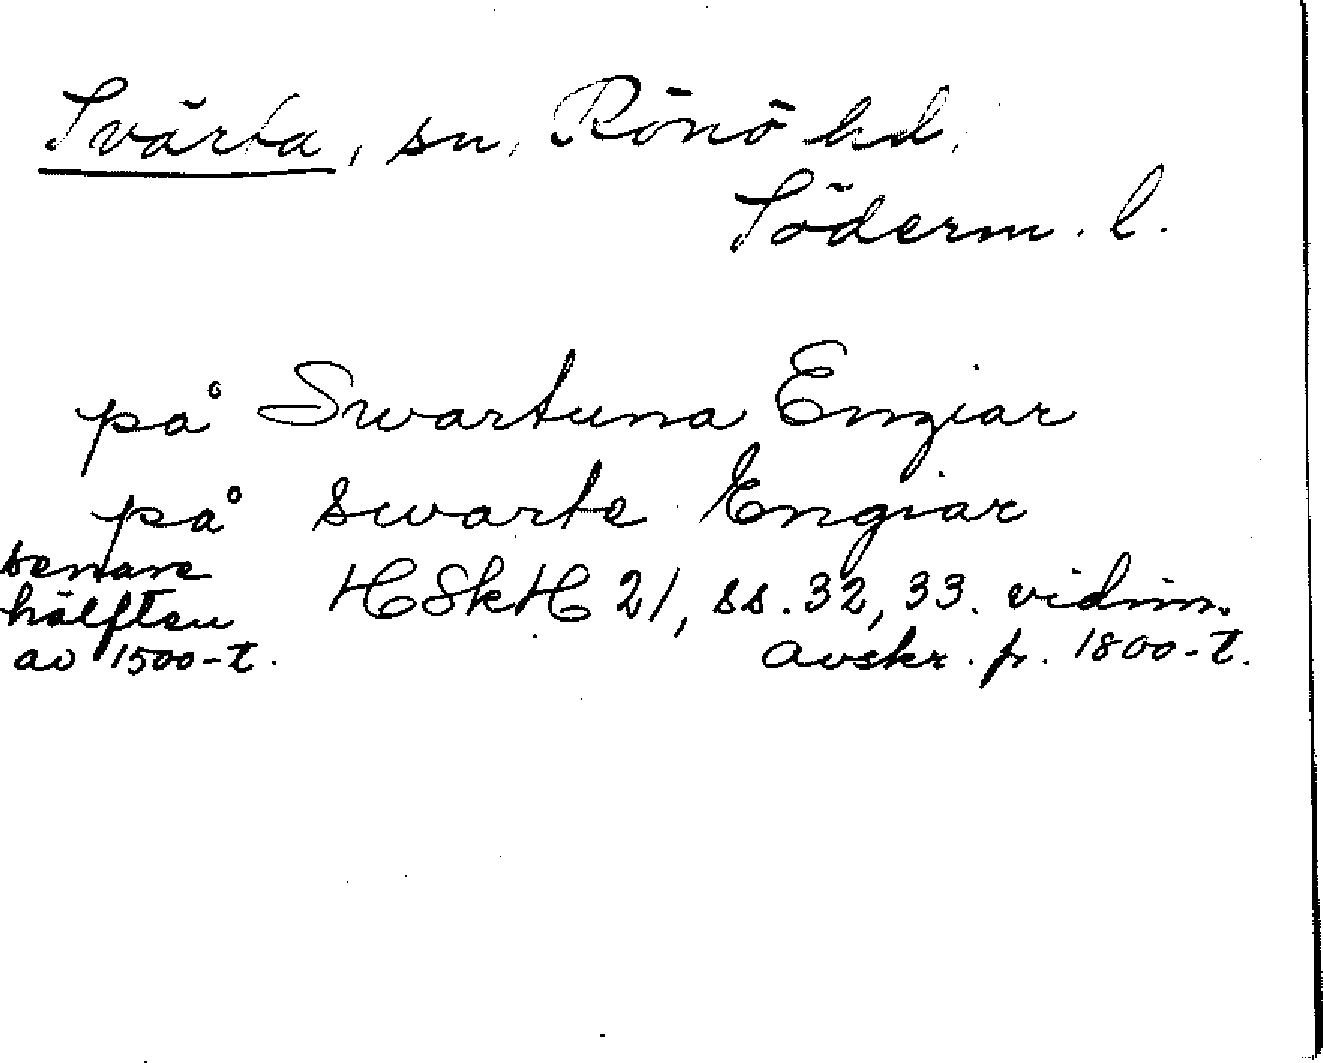 Svärta, sn, Rönö hd,
Söderm. l.
på Swartuna Engiar
på swarte Engiar
senare hälften av 1500-t.
HSkH 21, ss. 32, 33. vidim.
avskr. fr. 1800-t.